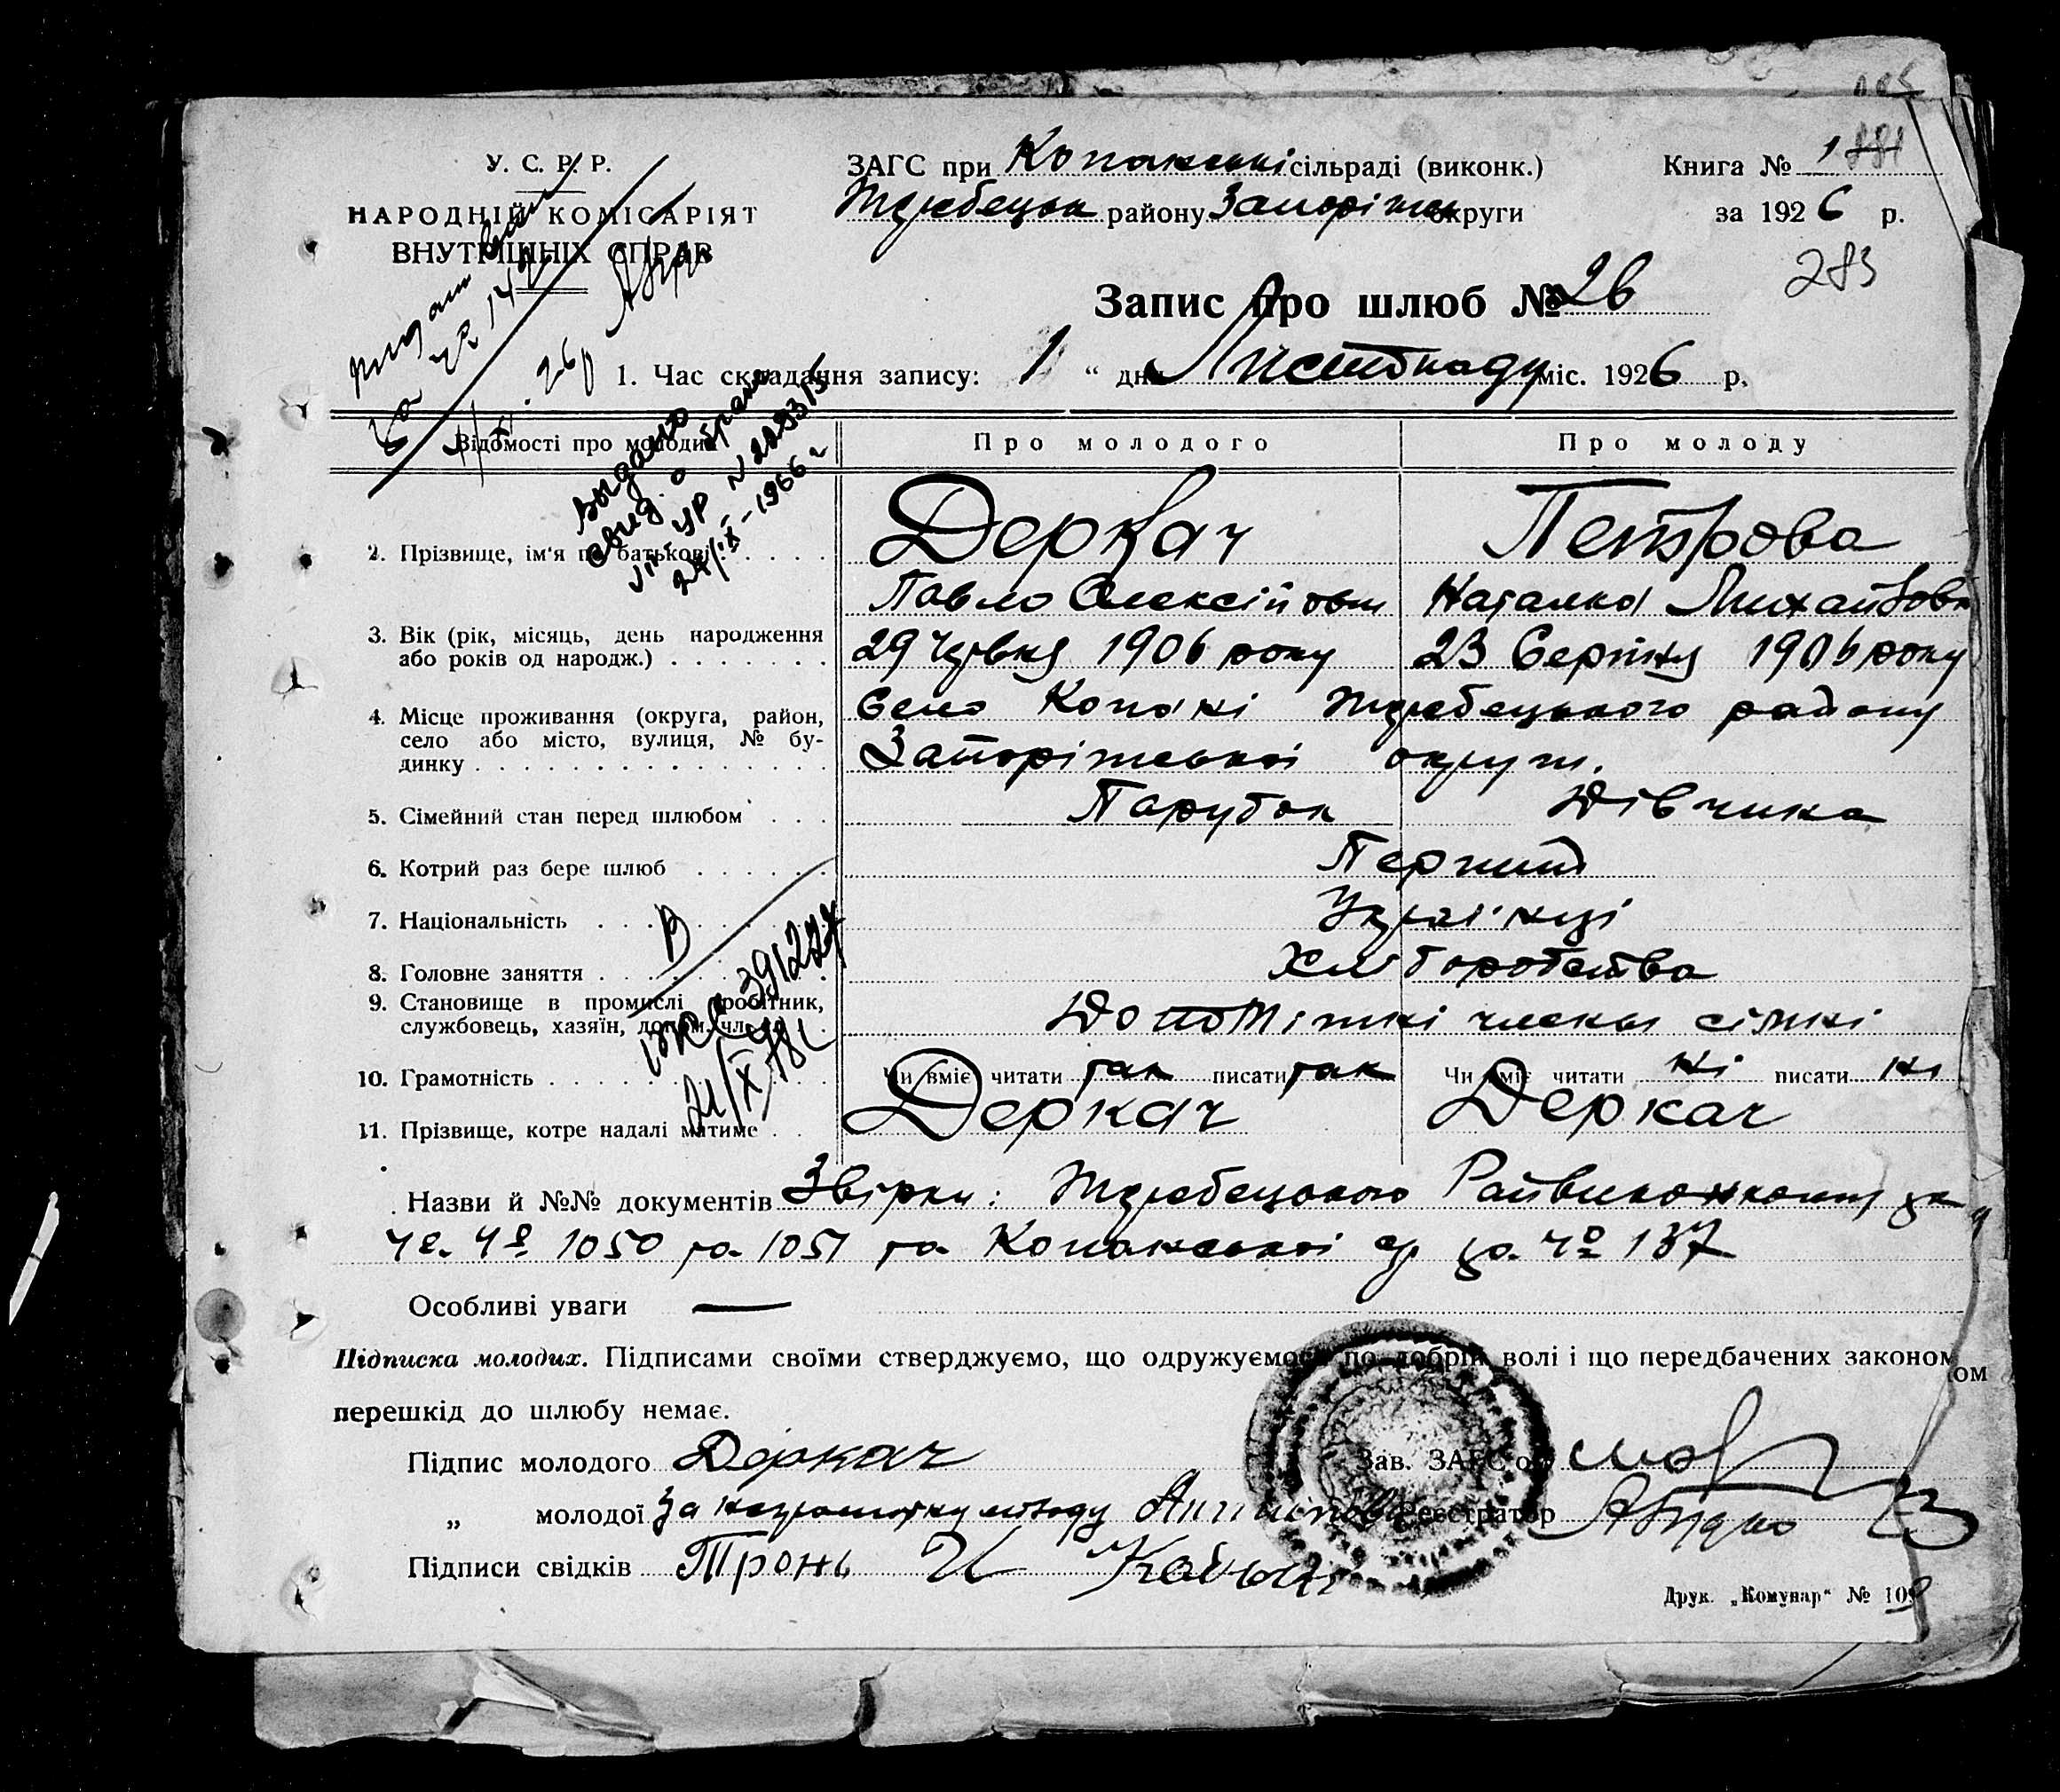 У. С. Р. Р.
НАРОДНІЙ КОМІСАРІЯТ
ВНУТРІШНІХ СПРАВ
ЗАГС при Копанській сільраді (виконк.)
Жеребецьк району Запоріжж округи
Книга № 1
за 1926 р.
283
Запис про шлюб № 26
1. Час складання запису: 1 “ дня Листопаду міс. 1926 р.
Відомості про молодих
Про молодого
Про молоду
Видано
свид. о браке
УР № 229313
24/IX-1966 г
2. Прізвище, ім'я по батькові
Деркач
Павло Олексійович
Петрова
Наталка Михайлов
3. Вік (рік, місяць, день народження
або років од народж.)
29 Червня 1906 року
23 Серпня 1906 року
4. Місце проживання (округа, район,
село або місто, вулиця, № бу-
динку
Село Копані Жеребецького району
Запоріжської округи.
5. Сімейний стан перед шлюбом
Парубок
Дівчина
6. Котрий раз бере шлюб
Перший
7. Національність
Українці
8. Головне заняття
Хліборобство
9. Становище в промислі (робітник,
службовець, хазяїн, допом. чл.
Допоміжні члени сімні
10. Грамотність
Чи вміє читати так писати так
Чи вміє читати ні писати ні
11. Прізвище, котре надалі матиме
Деркач
Деркач
391227
21/X
Назви й №№ документів Звірки: Жеребецького Райвиконкому за
Чс. Чс. 1050 та 1051 та Копанської с/р за Чс 137
Особливі уваги —
Підписка молодих. Підписами своїми стверджуємо, що одружуємось по добрій волі і що передбачених законом
перешкід до шлюбу немає.
Підпис молодого Деркач
Зав. ЗАГС'ом
„ молодої За неграмотну молоду
Реєстратор
Підписи свідків Тронь
Друк. „Комунар“ № 109